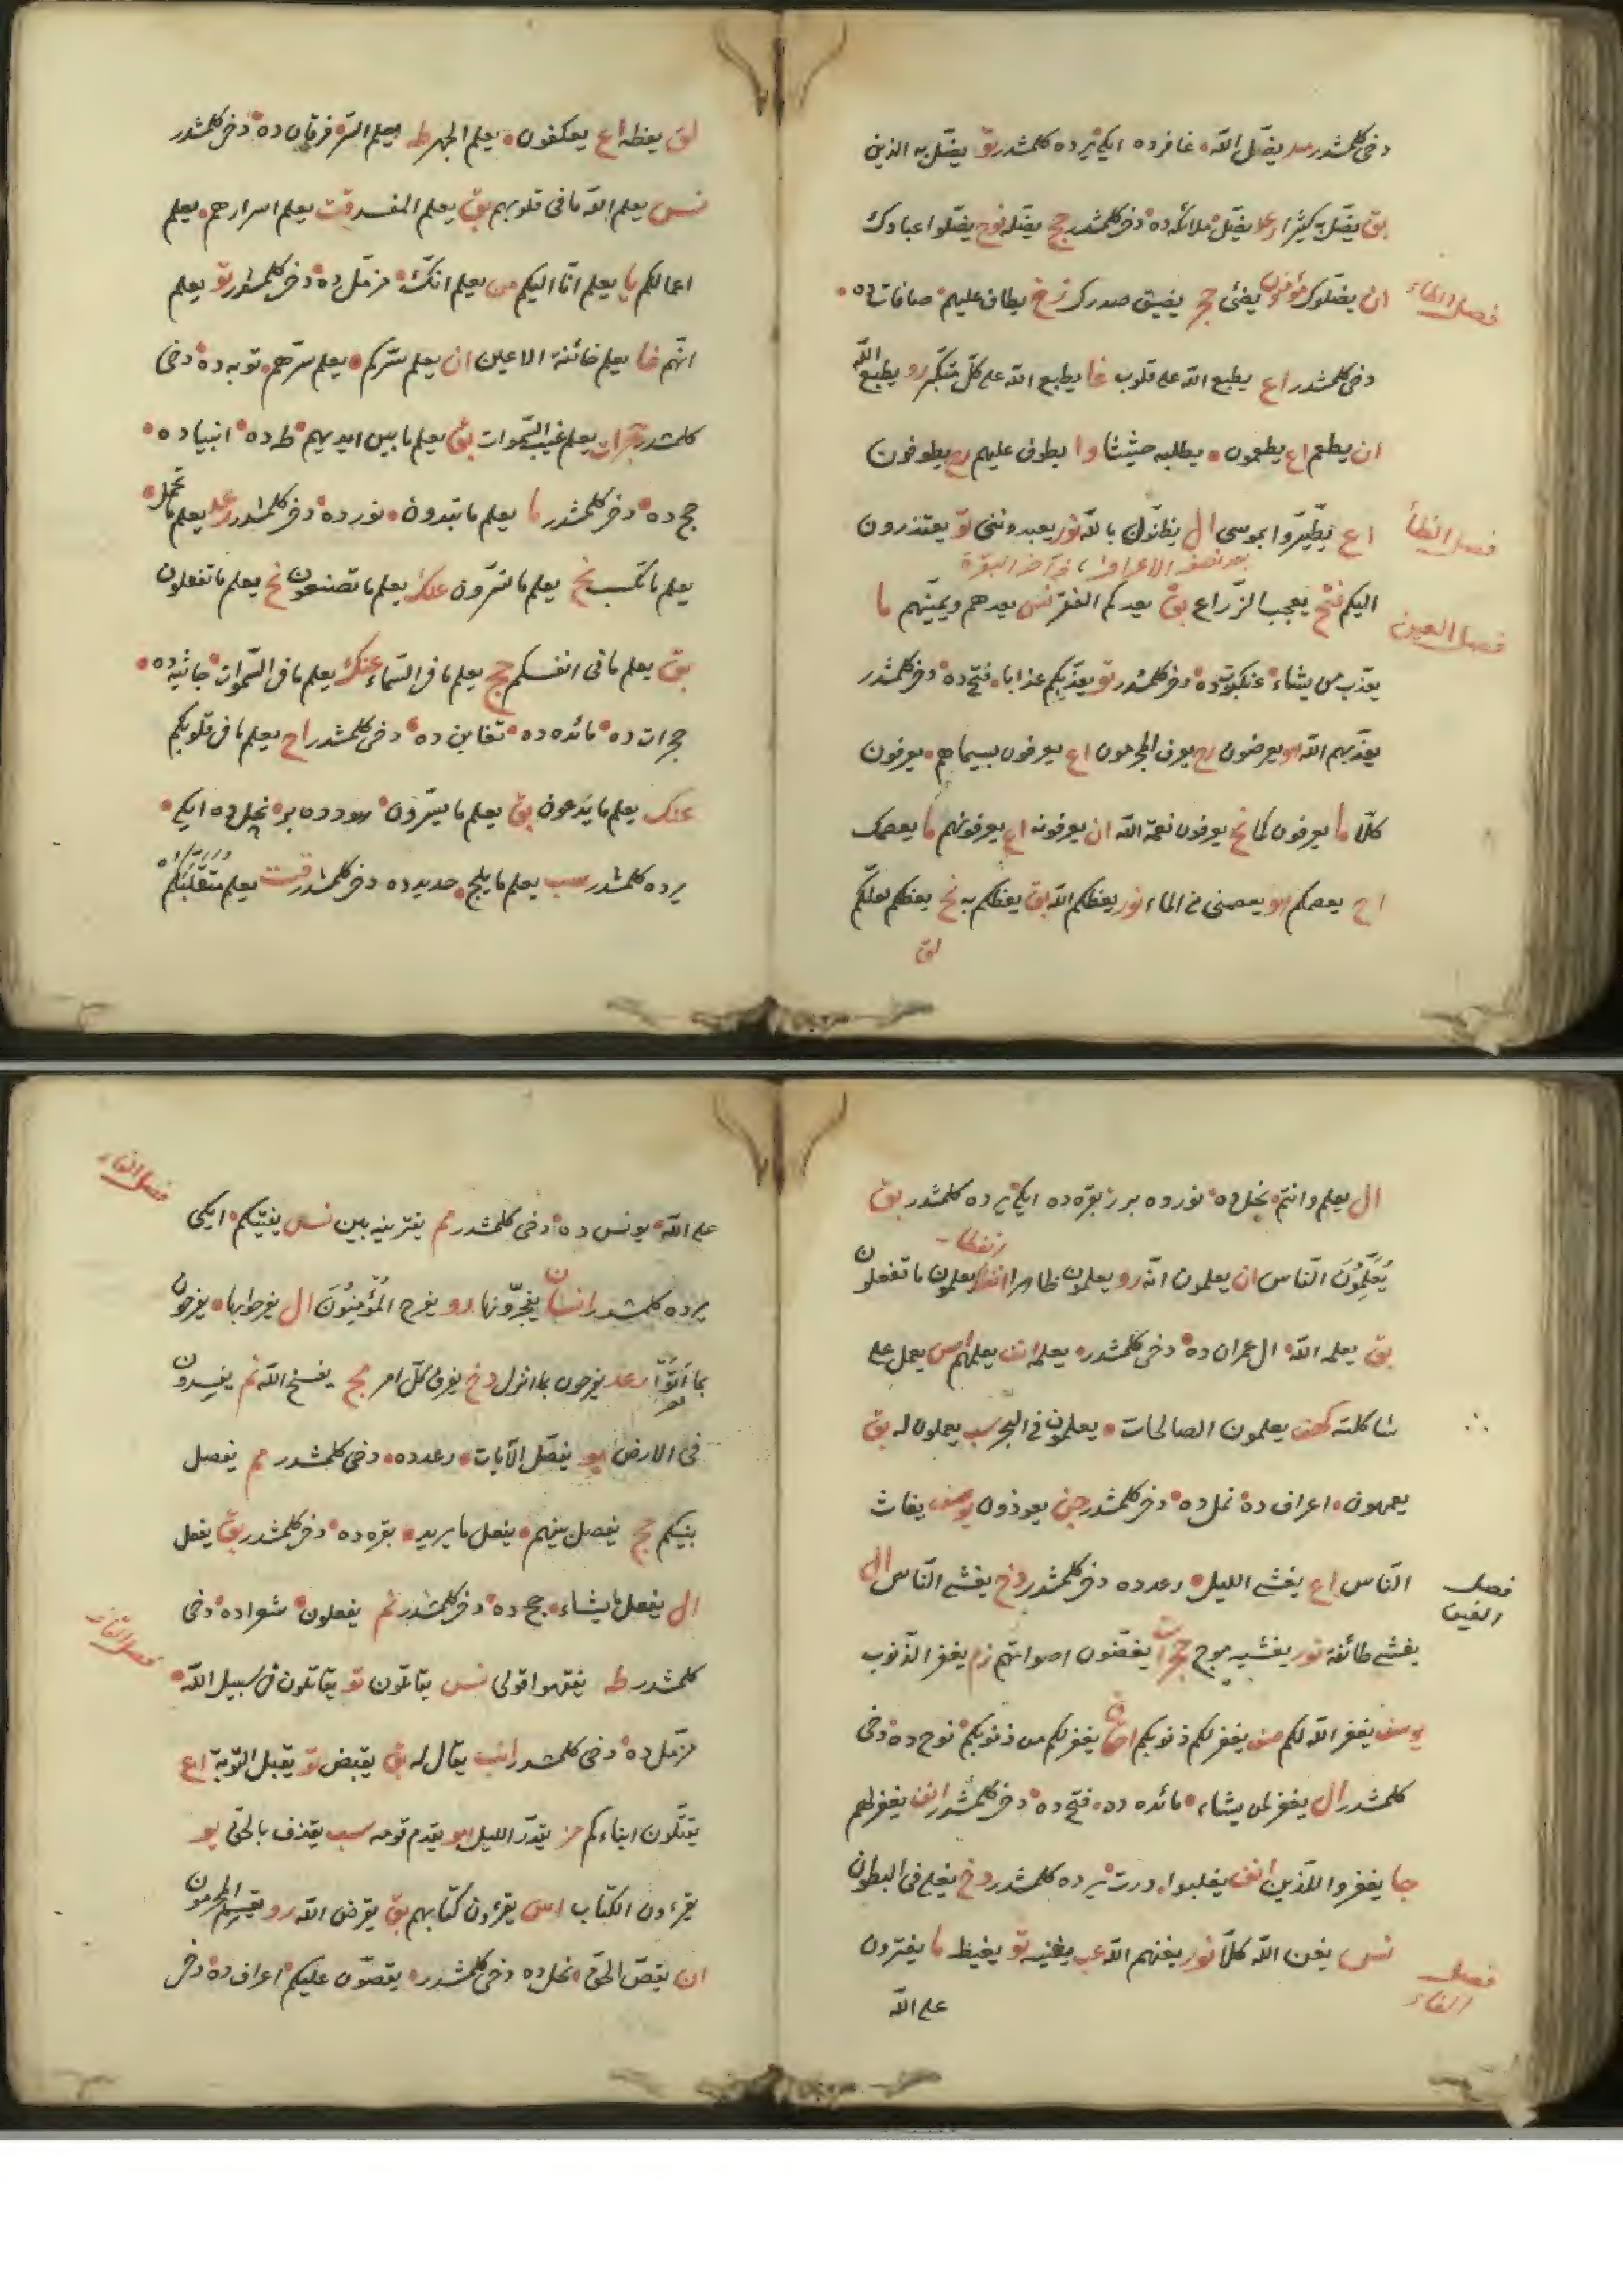 دخى كلمشدر مد يضلّ الله غافرده ايكى يرده كلمشدر تو يضلّ به الذين
بق يضلّ به كثيرا رعد يضلّ ملائكه ده دخى كلمشدر حج يضلّه نوح يضلّوا عبادك
فصل الطاء
ان يضلوك مؤمنون يضئ حجر يضيق صدرك زخ يطاف عليهم صافات ده
دخى كلمشدر اع يطبع الله على قلوب غا يطبع الله على كلّ متكبّر رو يطبع الله
ان يطعم اع يطعمون يطلبه حثيثا وا يطوف عليهم رح يطوفون
فصل الظأ
اع يطّيّروا بموسى ال يظنّون بالله نور يعبدوننى تو يعتذرون
بعد نصف الاعراف
فصل العين
اليكم فتح يعجب الزّرّاع بق يعدكم الفقر نس يعدهم ويمنّيهم ما
يعذّب من يشاء عنكبوت ده دخى كلمشدر تو يعذّبكم عذابا فتح ده دخى كلمشدر
يعذّبهم الله هو يعرضون رح يعرف المجرمون اع يعرفون بسيماهم يعرفون
كلّا ما يعرفون كما نح يعرفون نعمة الله ان يعرفونه اع يعرفونهم ما يعصمك
اح يعصمكم هو يعصمنى من الماء نور يعظكم الله بق يعظكم به نح يعظكم لعلّكم
لق
لق يعظه اع يعكفون يعلم الجهر طه يعلم السّرّ فرقان ده دخى كلمشدر
نس يعلم الله ما فى قلوبهم بق يعلم المفسد قت يعلم اسرارهم يعلم
اعمالكم يا يعلم انّا اليكم من يعلم انّك مزمّل ده دخى كلمشدر تو يعلم
انّهم غا يعلم خائنة الاعين ان يعلم سرّكم يعلم سرّهم توبه ده دخى
كلمشدر حجرات يعلم غيب السّموات بق يعلم ما بين ايديهم طه ده انبيا ده
حج ده دخى كلمشدر ما يعلم ما تبدون نور ده دخى كلمشدر رعد يعلم ما تحمل
يعلم ما تكسب نح يعلم ما تسرّون عنك يعلم ما تصنعون نح يعلم ما تفعلون
بق يعلم ما فى انفسكم حج يعلم ما فى السّماء عنك يعلم ما فى السّموات جاثيه ده
حجرات ده مائده ده تغابن ده دخى كلمشدر اح يعلم ما فى قلوبكم
عنك يعلم ما يدعون بق يعلم ما يسرّون هودده بر نحل ده ايكى
يرده كلمشدر سب يعلم ما يلج حديد ده دخى كلمشدر قت يعلم متقلّبكم
ال يعلم وانتم نحل ده نورده بر بقره ده ايكى يرده كلمشدر بق
يعلّمون النّاس ان يعلمون انّه رو يعلمون ظاهرا انفطا يعلمون ما تفعلون
انفطا
بق يعلمه الله ال عمران ده دخى كلمشدر يعلمه انف يعلمهم اس يعمل على
شاكلته كهف يعلمون الصالحات يعملون فى البحر سب يعملون له بق
يعمهون اعراف ده نمل ده دخى كلمشدر جن يعوذون يوسف يغاث
فصل الغين
النّاس اع يغشى الليل رعد ده دخى كلمشدر دخ يغشى النّاس ال
يغشى طائفة نور يغشيه موج حجرات يغضّون اصواتهم زم يغفر الذّنوب
يوسف يغفر الله لكم صف يغفر لكم ذنوبكم احقا يغفر لكم من ذنوبكم نوح ده دخى
كلمشدر ال يغفر لمن يشاء مائده ده فتح ده دخى كلمشدر انف يغفر لهم
جا يغفروا للّذين انف يغلبوا درت يرده كلمشدر دخ يغلى فى البطون
فصل الفاء
نس يغن الله كلّا نور يغنهم الله عب يغنيه تو يغيظ ما يفترون
على الله
فصل الفاء
على الله يونس ده دخى كلمشدر مم يفترينه بين نس يفتيكم ايكى
يرده كلمشدر انسان يفجّرونها رو يفرح المؤمنون ال يفرحوا بها يفرحون
بما اتوا رعد يفرحون بما انزل دخ يفرق كلّ امر مج يفسح الله نم يفسدون
فى الارض يو يفصّل الآيات رعدده دخى كلمشدر مم يفصل
بينكم حج يفصل بينهم يفعل ما يريد بقره ده دخى كلمشدر بق يفعل
ال يفعل ما يشاء حج ده دخى كلمشدر نم يفعلون شعراده دخى
فصل القاف
كلمشدر طه يفقهوا قولى نس يقاتلون تو يقاتلون فى سبيل الله
مزمّل ده دخى كلمشدر انب يقال له بق يقبض تو يقبل التّوبة اع
يقتّلون ابناءكم مز يقدّر الليل هو يقدم قومه سب يقذف بالحقّ يو
يقرءون الكتاب اس يقرءون كتابهم بق يقرض الله رو يقسم المجرمون
ان يقصّ الحقّ نحل ده دخى كلمشدر يقصّون عليكم اعراف ده دخى